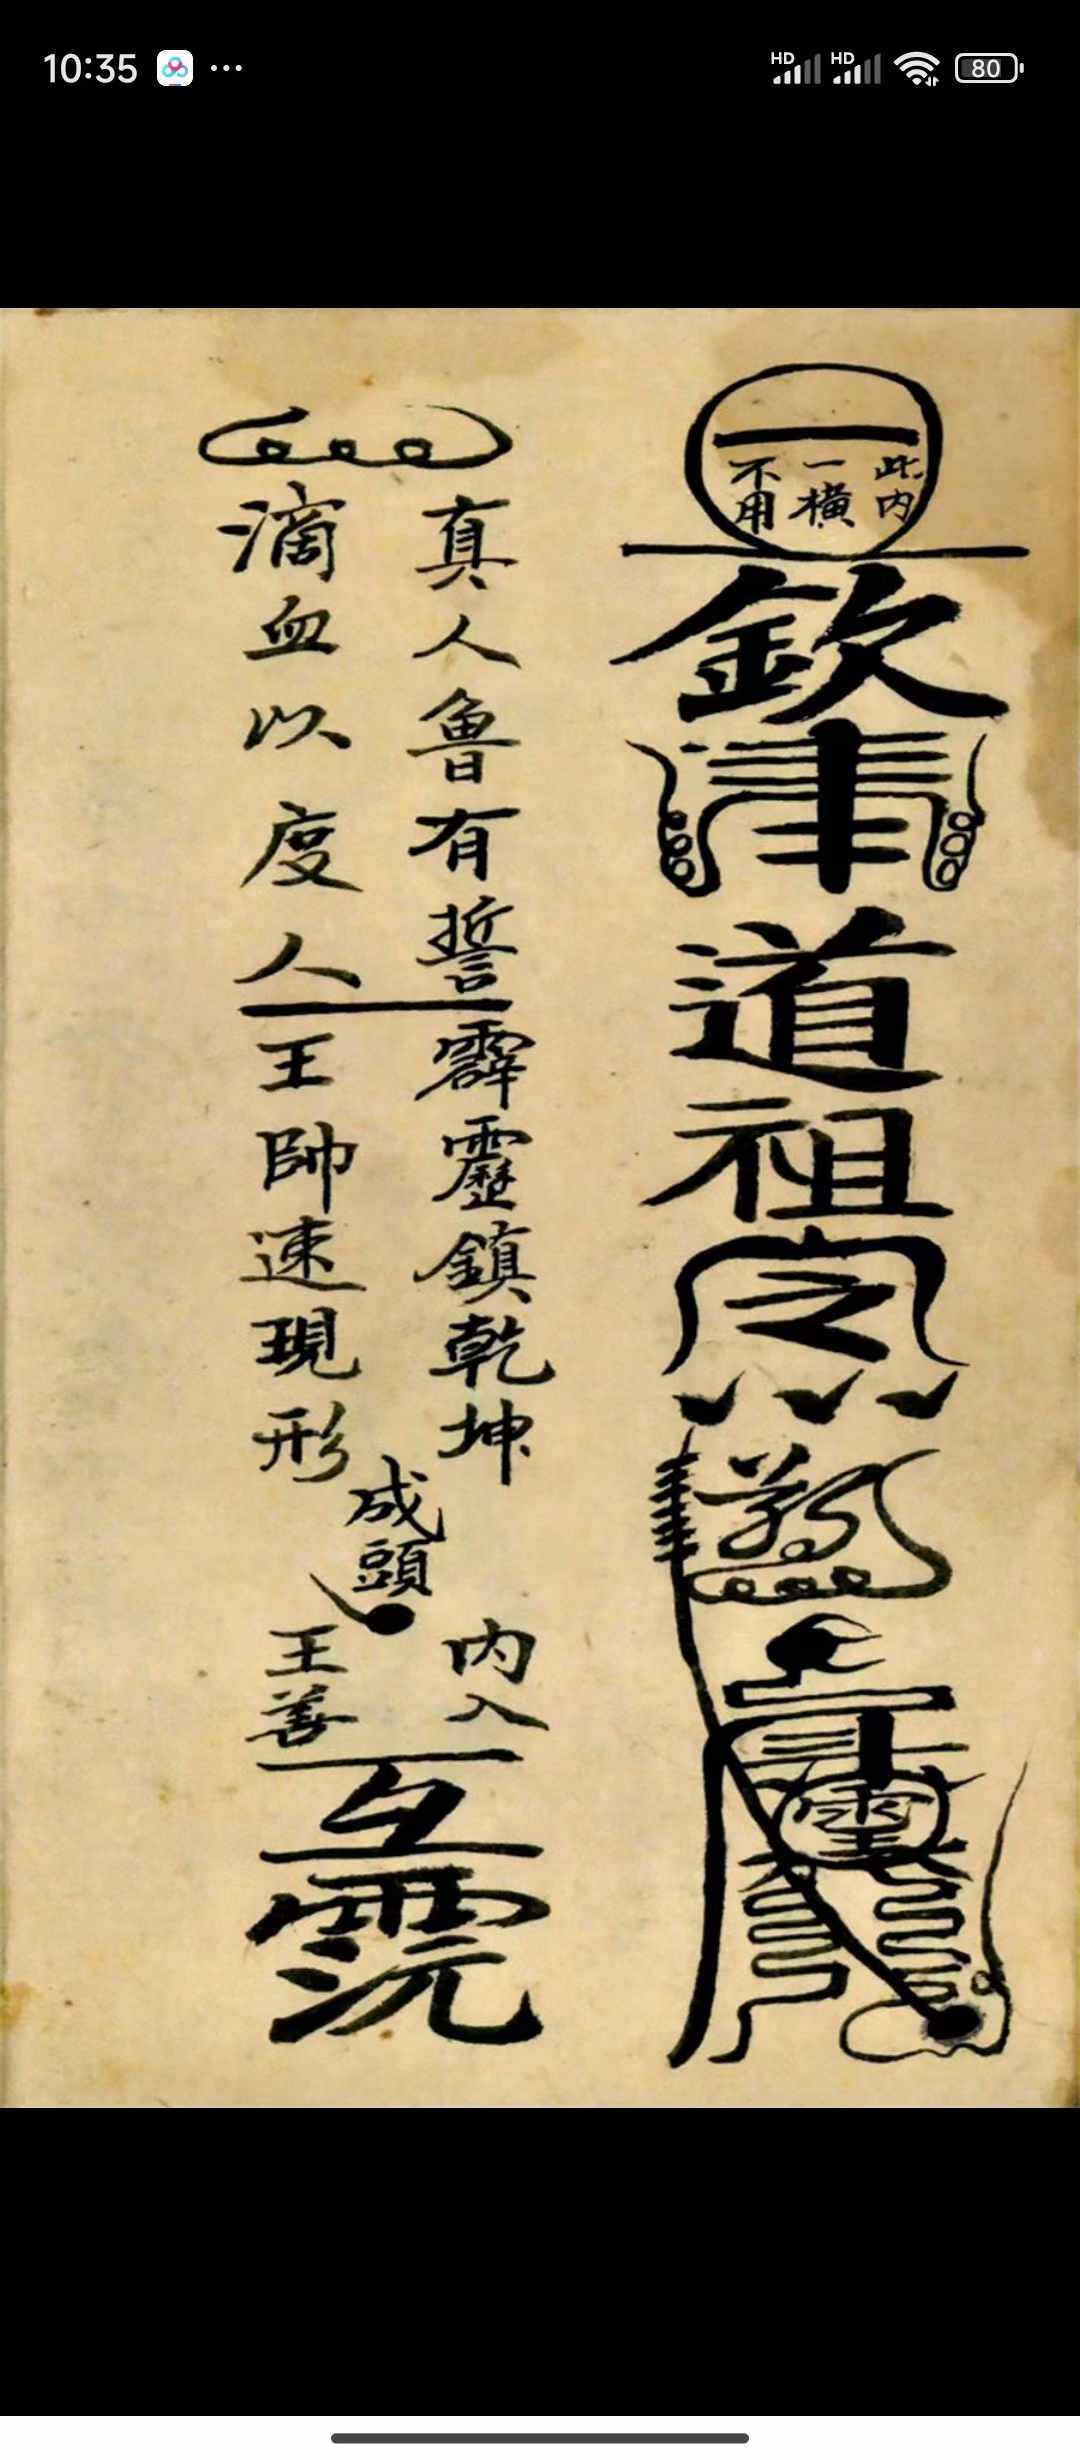 10:35
HD HD 80
此内
一橫
不用
欽奉道祖令
真人魯有誓
滴血以度人
霹靂鎮乾坤
王帥速現形
成頭
内入
王善